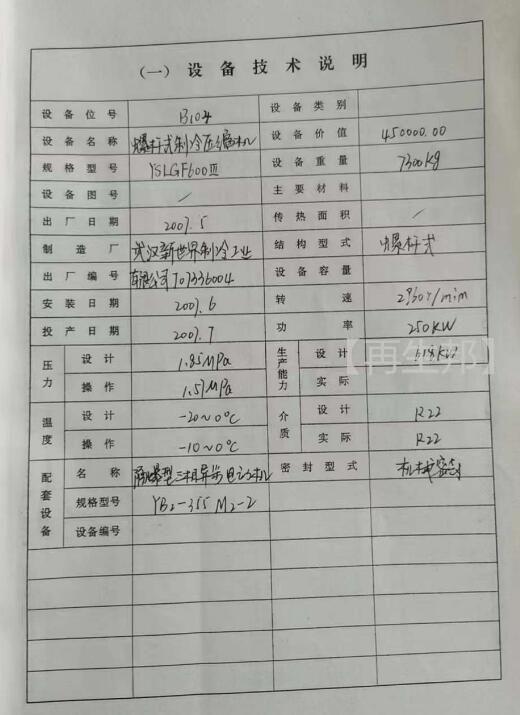 （一）设备技术说明
设备位号 B104 设备类别
设备名称 螺杆式制冷压缩机 设备价值 450000.00
规格型号 YSLGF600Ⅲ 设备重量 7300Kg
设备图号 / 主要材料
出厂日期 2007.5 传热面积 /
制造厂 武汉新世界制冷工业 结构型式 螺杆式
出厂编号 有限公司707336004 设备容量
安装日期 2007.6 转速 2960r/min
投产日期 2007.7 功率 250KW
压力 设计 1.85MPa 生产能力 设计 618KW
操作 1.57MPa 实际
温度 设计 -20~0℃ 介质 设计 R22
操作 -10~0℃ 实际 R22
配套设备 名称 隔爆型三相异步电动机 密封型式 机械密封
规格型号 YB2-355M2-2
设备编号
【再生邦】